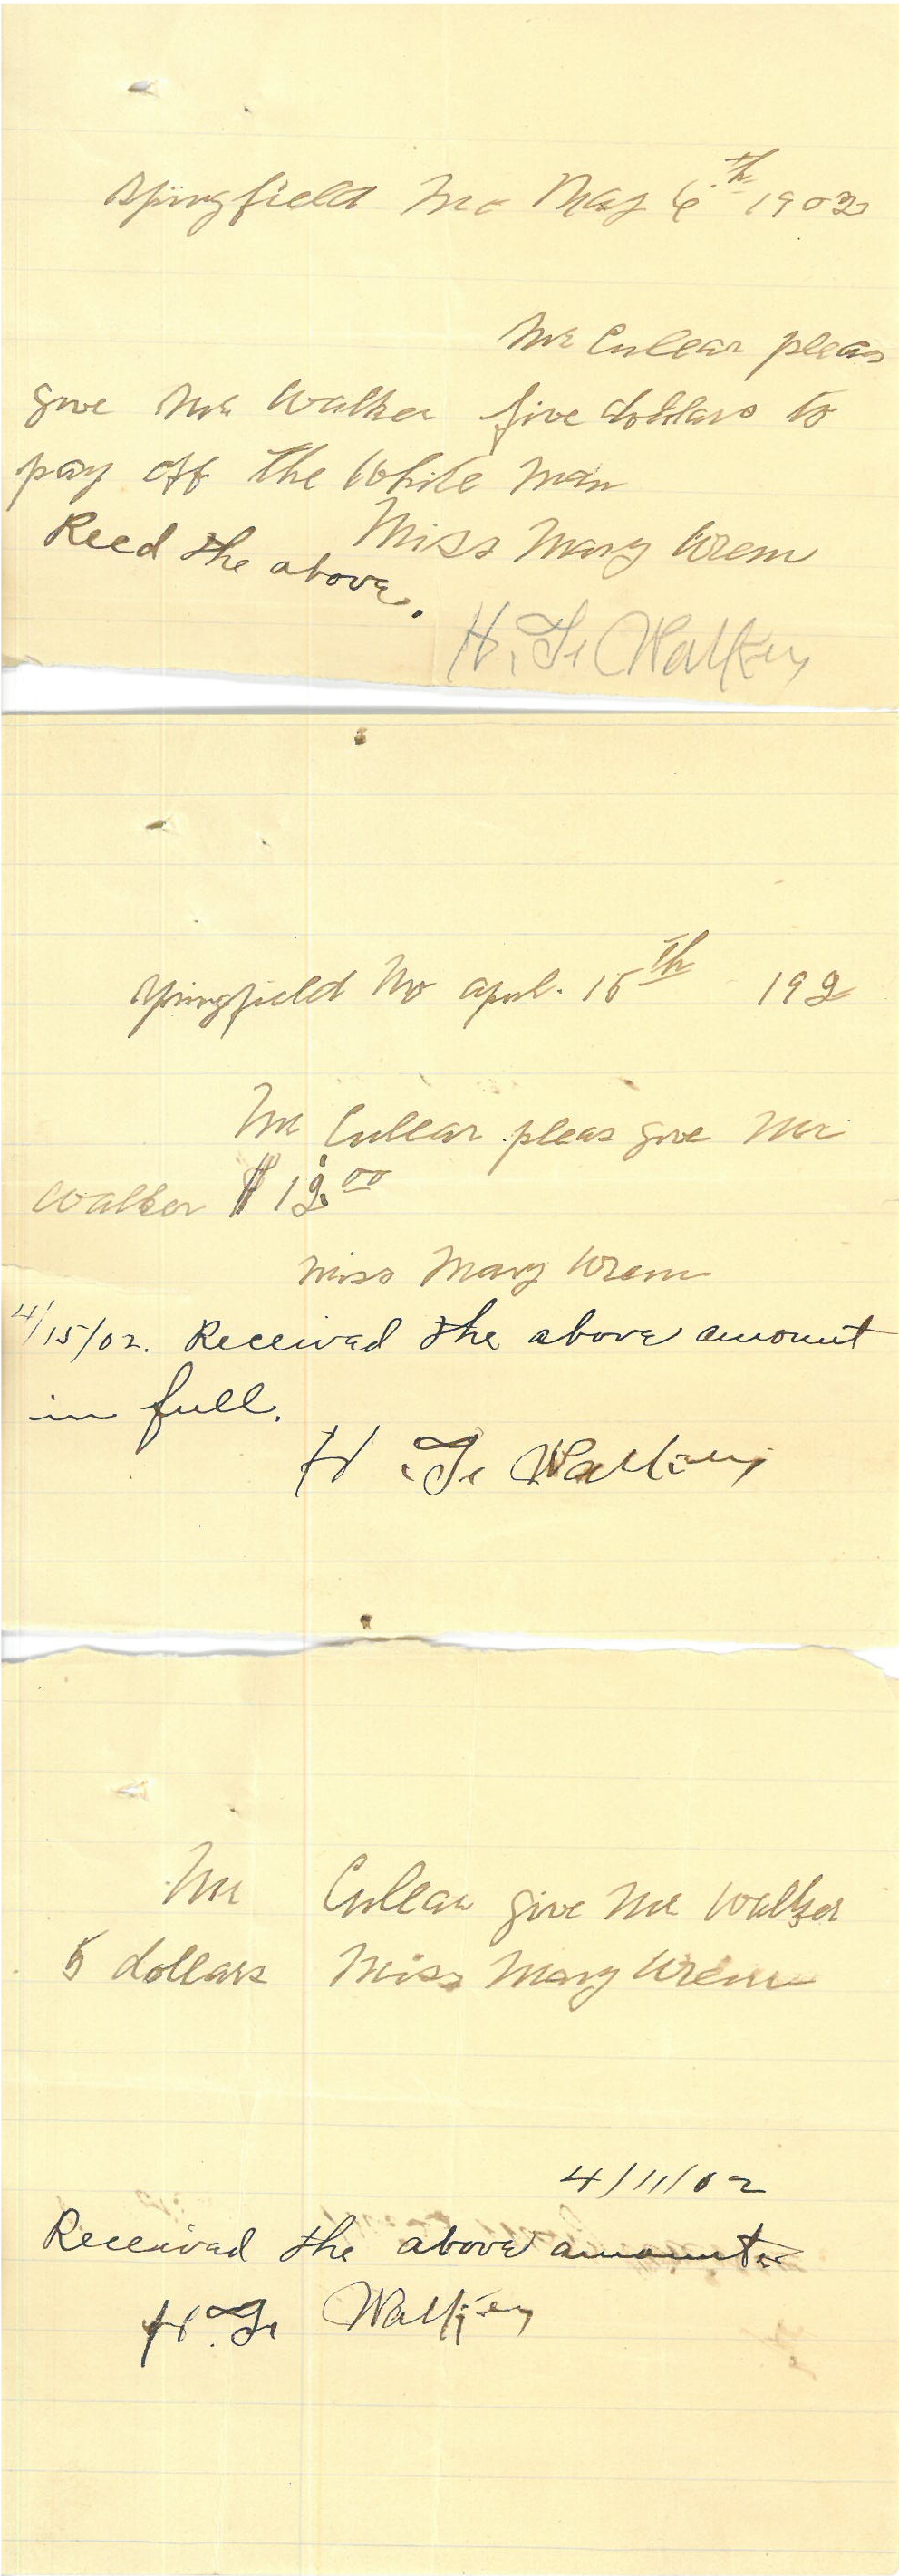 Springfield Mo May 6th 1902
Mr Culear pleas
give Mr Walker five dollars to
pay off the White man
Miss Mary Wrem
Recd the above.
H. T. Walker
Springfield Mo april. 15th 192
Mr Culear pleas give Mr
Walker $ 12.00
Miss Mary Wrem
4/15/02. Received the above amount
in full.
H. T. Walker
Mr Culear give Mr Walker
5 dollars Miss Mary Wrem
4/11/02
Received the above amount
H. T. Walker